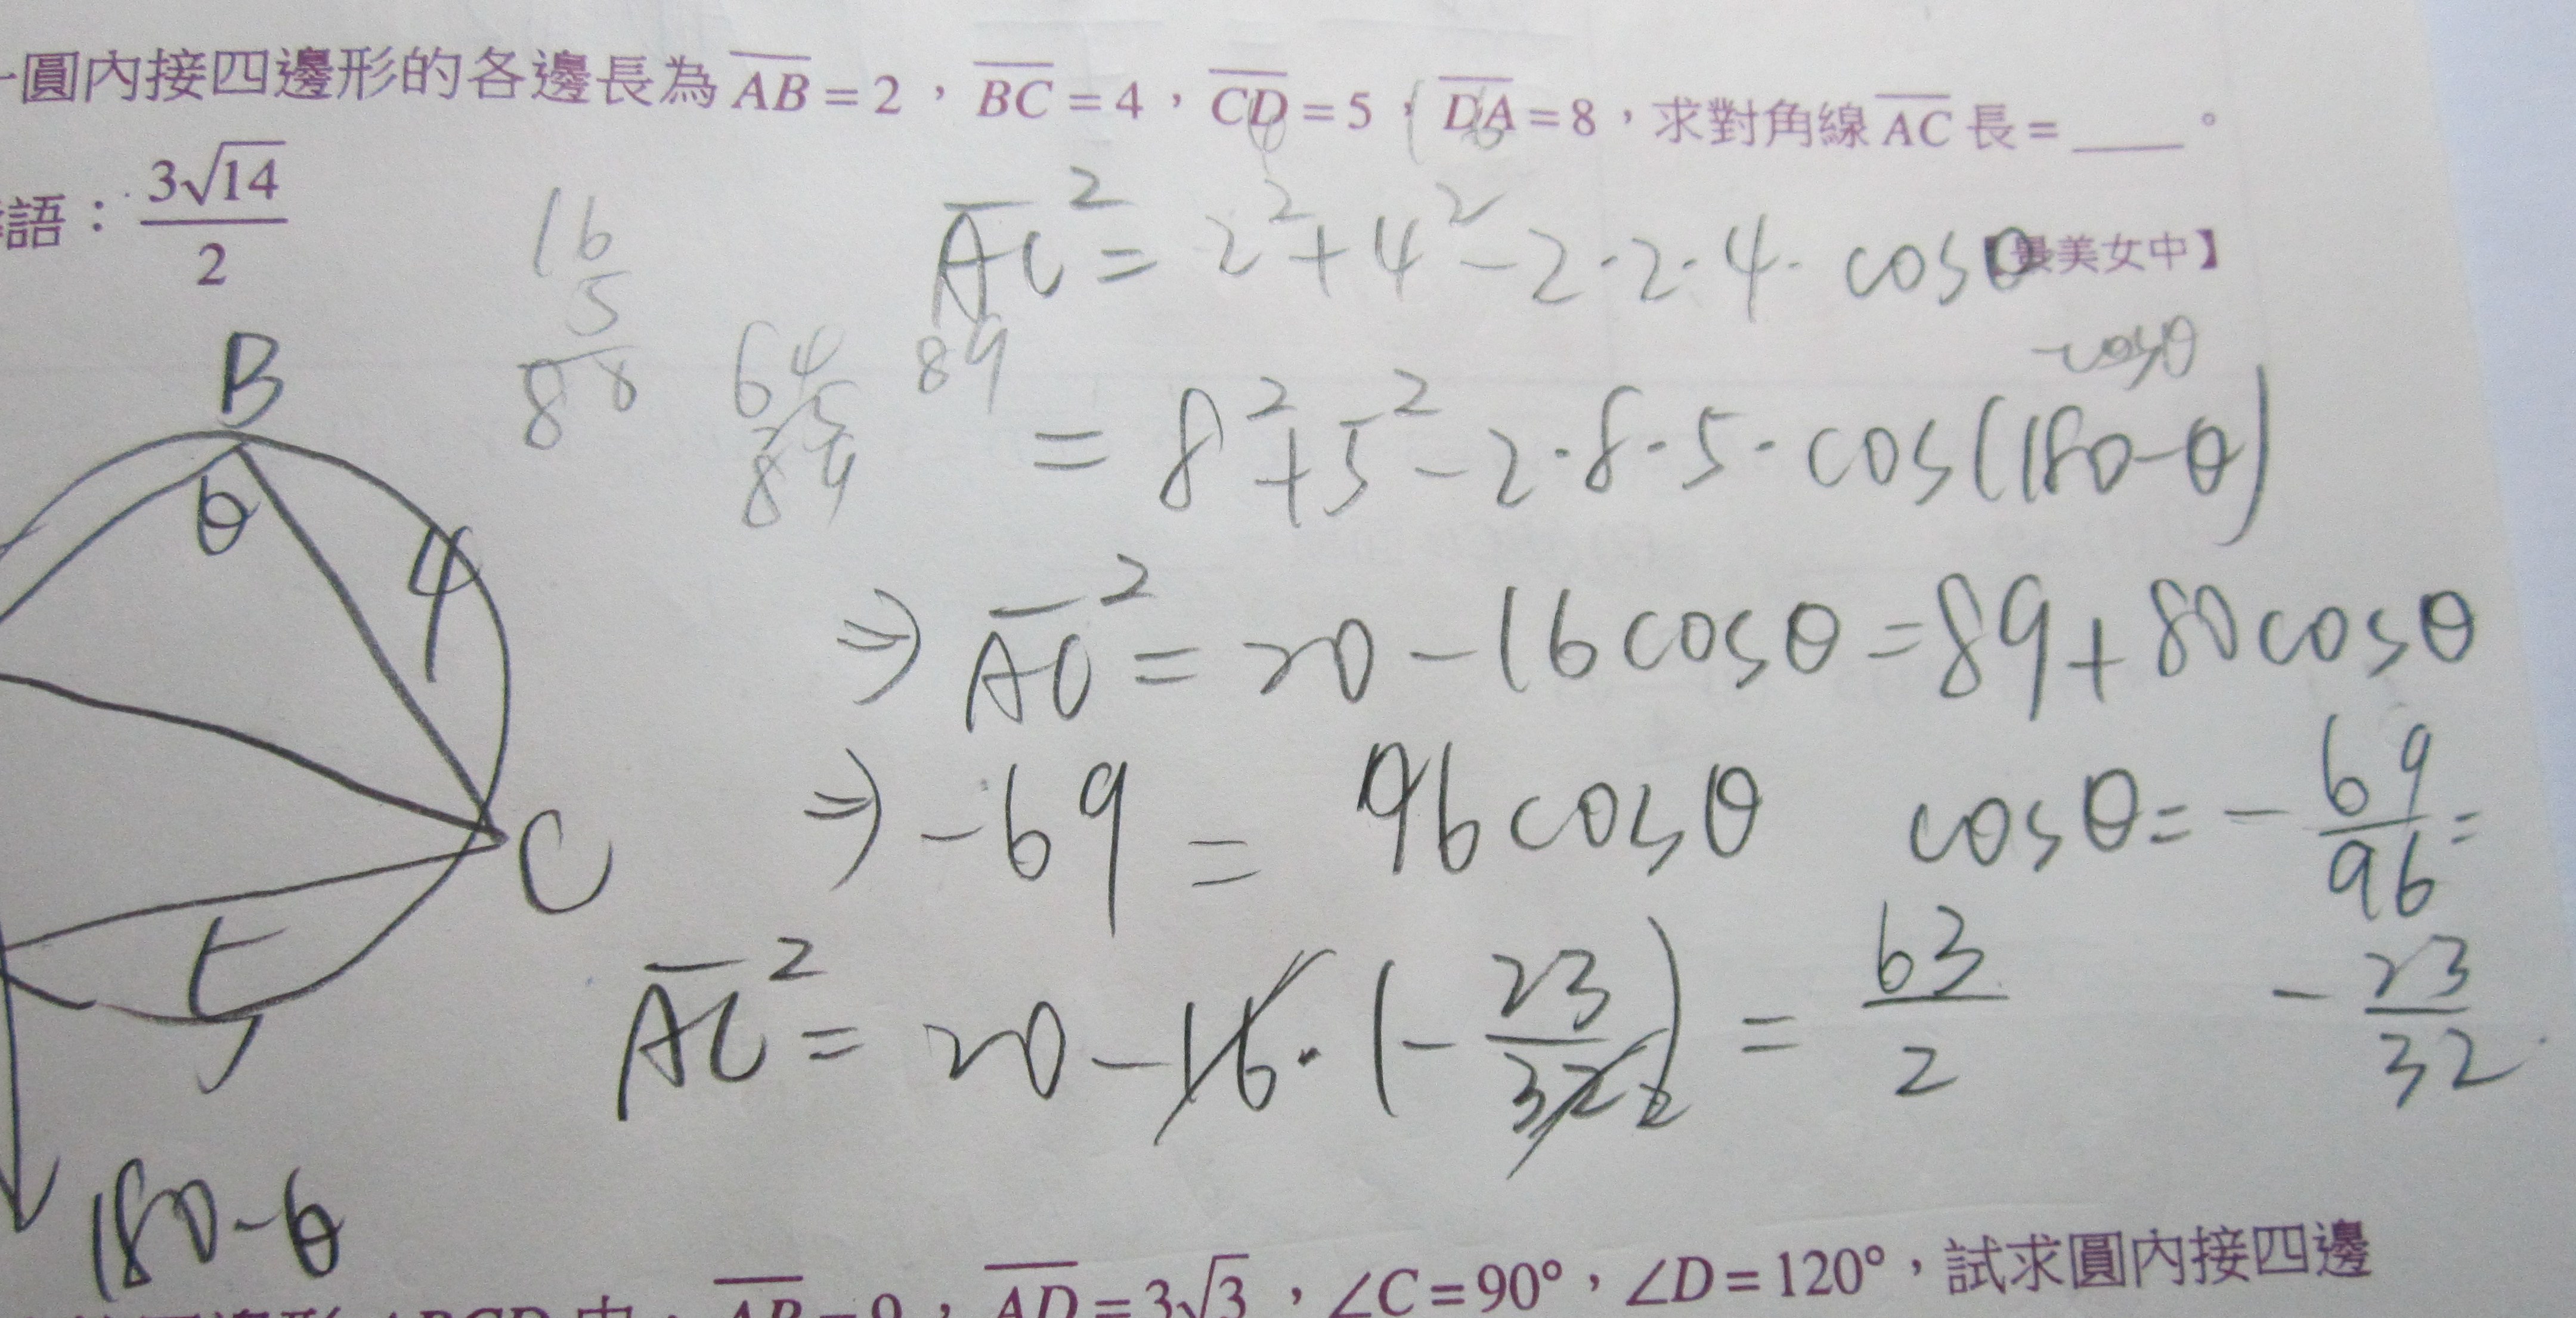 一圓內接四邊形的各邊長為 AB = 2，BC = 4，CD = 5，DA = 8，求對角線 AC 長 = ____。
語：3√14/2
【最美女中】
AC² = 2² + 4² - 2·2·4·cosθ
-cosθ
= 8² + 5² - 2·8·5·cos(180-θ)
16
5
88
64
25
89
89
⇒ AC² = 20 - 16cosθ = 89 + 80cosθ
⇒ -69 = 96cosθ cosθ = -69/96 =
-23/32
AC² = 20 - 16·(-23/32 2) = 63/2
B
θ
4
C
5
180-θ
AB = 9，AD = 3√3，∠C = 90°，∠D = 120°，試求圓內接四邊